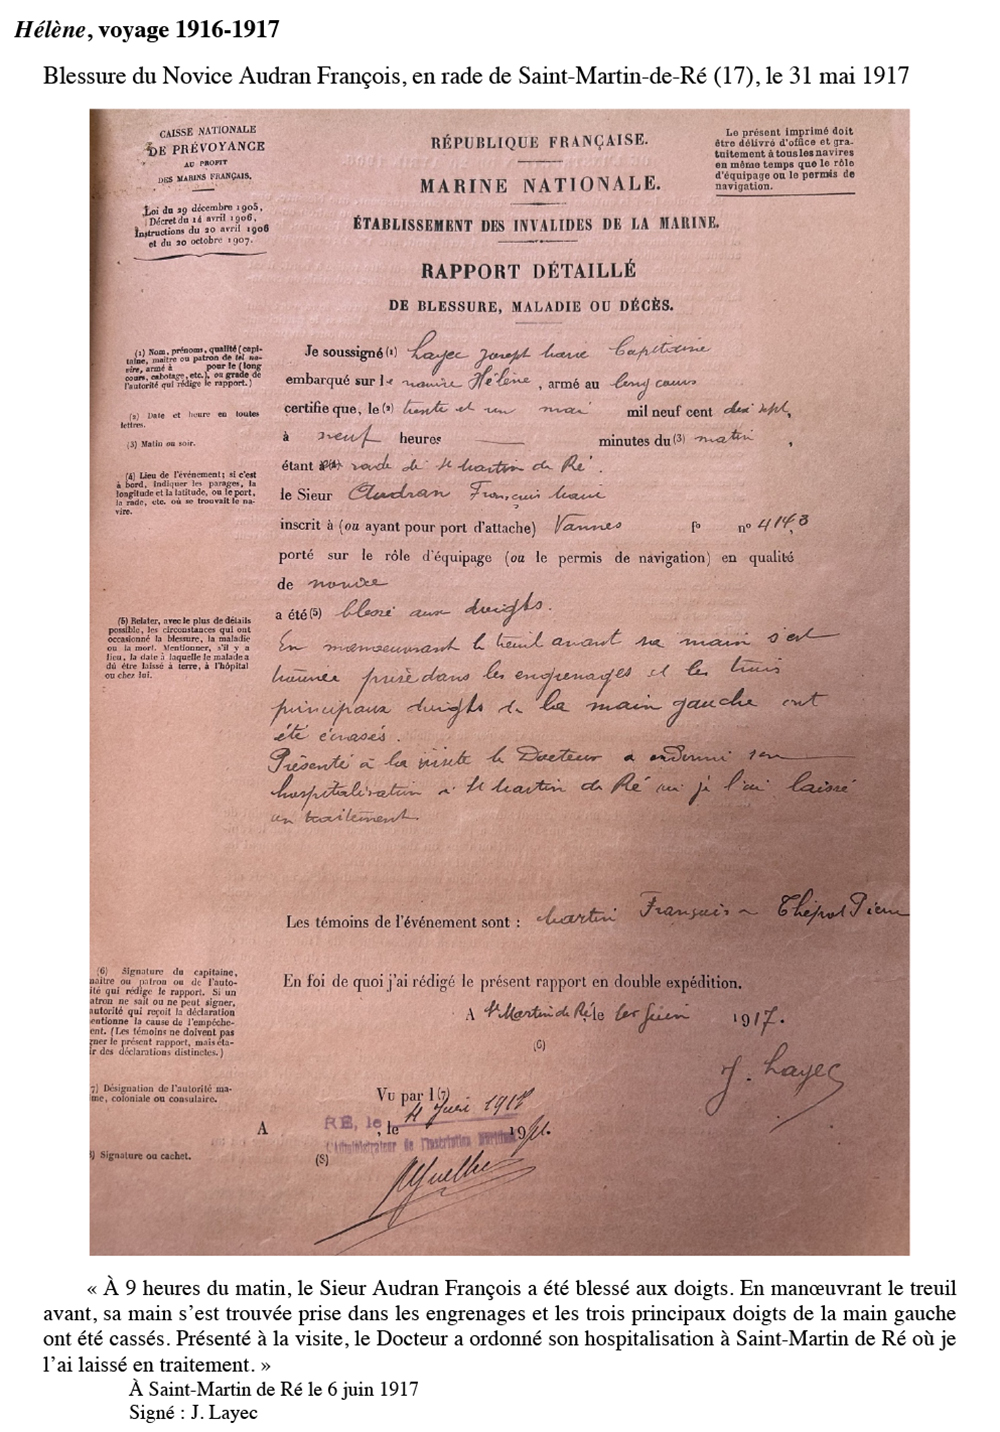 Hélène, voyage 1916-1917
Blessure du Novice Audran François, en rade de Saint-Martin-de-Ré (17), le 31 mai 1917
CAISSE NATIONALE
DE PRÉVOYANCE
AU PROFIT
DES MARINS FRANÇAIS.
Loi du 29 décembre 1905,
Décret du 14 avril 1906,
Instructions du 20 avril 1906
et du 20 octobre 1907.
RÉPUBLIQUE FRANÇAISE.
MARINE NATIONALE.
ÉTABLISSEMENT DES INVALIDES DE LA MARINE.
RAPPORT DÉTAILLÉ
DE BLESSURE, MALADIE OU DÉCÈS.
Le présent imprimé doit
être délivré d'office et gra-
tuitement à tous les navires
en même temps que le rôle
d'équipage ou le permis de
navigation.
(1) Nom, prénoms, qualité (capi-
taine, maître ou patron de tel na-
vire, armé à pour le (long
cours, cabotage, etc.), ou grade de
l'autorité qui rédige le rapport.)
(2) Date et heure en toutes
lettres.
(3) Matin ou soir.
(4) Lieu de l'événement; si c'est
à bord, indiquer les parages, la
longitude et la latitude, ou le port,
la rade, etc. où se trouvait le na-
vire.
(5) Relater, avec le plus de détails
possible, les circonstances qui ont
occasionné la blessure, la maladie
ou la mort. Mentionner, s'il y a
lieu, la date à laquelle le malade a
dû être laissé à terre, à l'hôpital
ou chez lui.
Je soussigné (1) Layec Joseph Marie Capitaine
embarqué sur le navire Hélène, armé au long cours
certifie que, le (2) trente et un mai mil neuf cent dix sept,
à neuf heures minutes du (3) matin,
étant (4) rade de St Martin de Ré.
le Sieur Audran François Marie
inscrit à (ou ayant pour port d'attache) Vannes fo no 4143
porté sur le rôle d'équipage (ou le permis de navigation) en qualité
de novice
a été (5) blessé aux doights.
En manoeuvrant le treuil avant sa main s'est
trouvée prise dans les engrenages et les trois
principaux doights de la main gauche ont
été écrasés.
Présenté à la visite le Docteur a ordonné son
hospitalisation à St Martin de Ré où je l'ai laissé
en traitement.
Les témoins de l'événement sont : Martin François Thépot Pierre
(6) Signature du capitaine,
maître ou patron ou de l'auto-
ité qui rédige le rapport. Si un
atron ne sait ou ne peut signer,
autorité qui reçoit la déclaration
entionne la cause de l'empêche-
ent. (Les témoins ne doivent pas
gner le présent rapport, mais éta-
ir des déclarations distinctes.)
7) Désignation de l'autorité ma-
me, coloniale ou consulaire.
) Signature ou cachet.
En foi de quoi j'ai rédigé le présent rapport en double expédition.
A St Martin de Ré le 1er Juin 1917.
(6)
J. Layec
Vu par l (7)
A RÉ, le 4 Juin 1917, le 19
L'Administrateur de l'Inscription Maritime
(8)
« À 9 heures du matin, le Sieur Audran François a été blessé aux doigts. En manœuvrant le treuil
avant, sa main s'est trouvée prise dans les engrenages et les trois principaux doigts de la main gauche
ont été cassés. Présenté à la visite, le Docteur a ordonné son hospitalisation à Saint-Martin de Ré où je
l'ai laissé en traitement. »
À Saint-Martin de Ré le 6 juin 1917
Signé : J. Layec